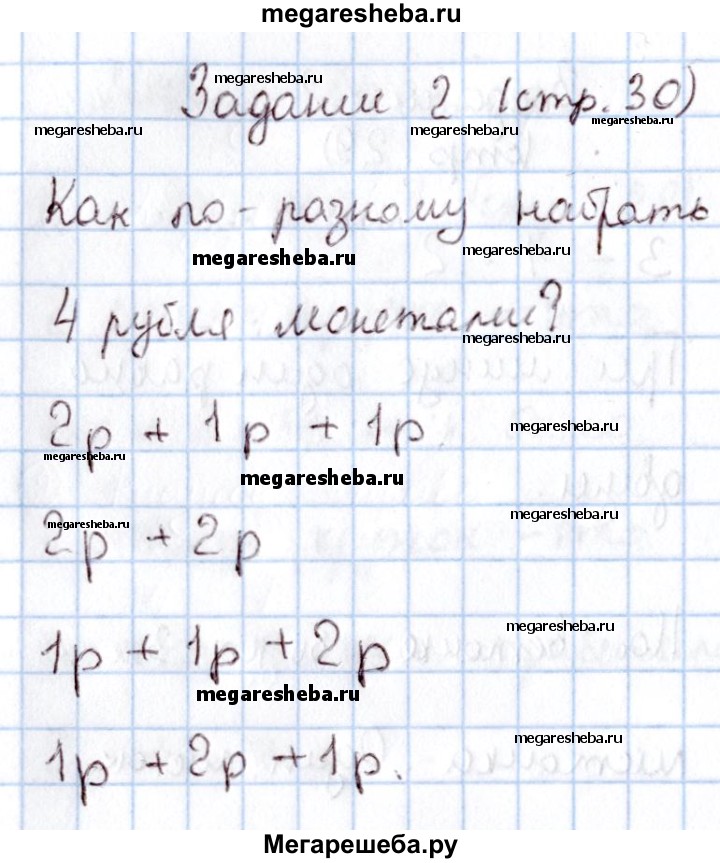 megaresheba.ru
Задание 2 (стр. 30)
megaresheba.ru
megaresheba.ru megaresheba.ru megaresheba.ru
Как по-разному набрать
megaresheba.ru
megaresheba.ru
4 рубля монетами?
megaresheba.ru
2р + 1р + 1р.
megaresheba.ru
megaresheba.ru
megaresheba.ru
megaresheba.ru
megaresheba.ru
2р + 2р
megaresheba.ru
1р + 1р + 2р
megaresheba.ru
megaresheba.ru
1р + 2р + 1р.
Мегарешеба.ру